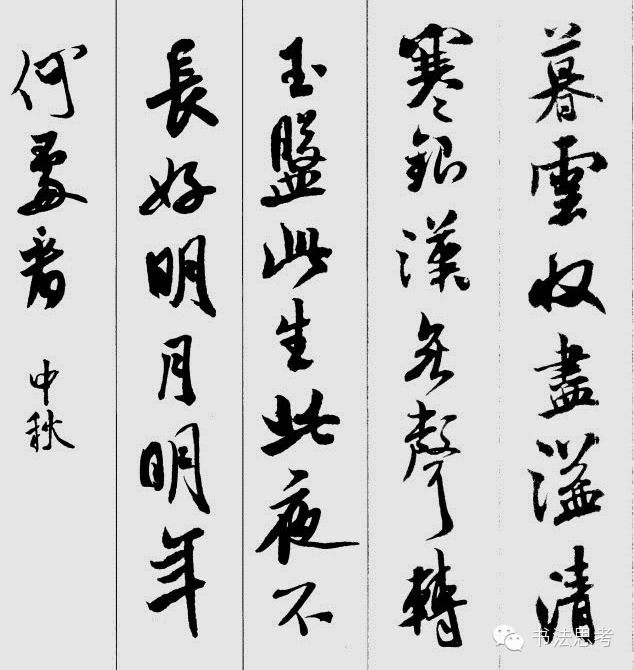 暮雲收盡溢清
寒銀漢無聲轉
玉盤此生此夜不
長好明月明年
何處看
中秋
书法思考